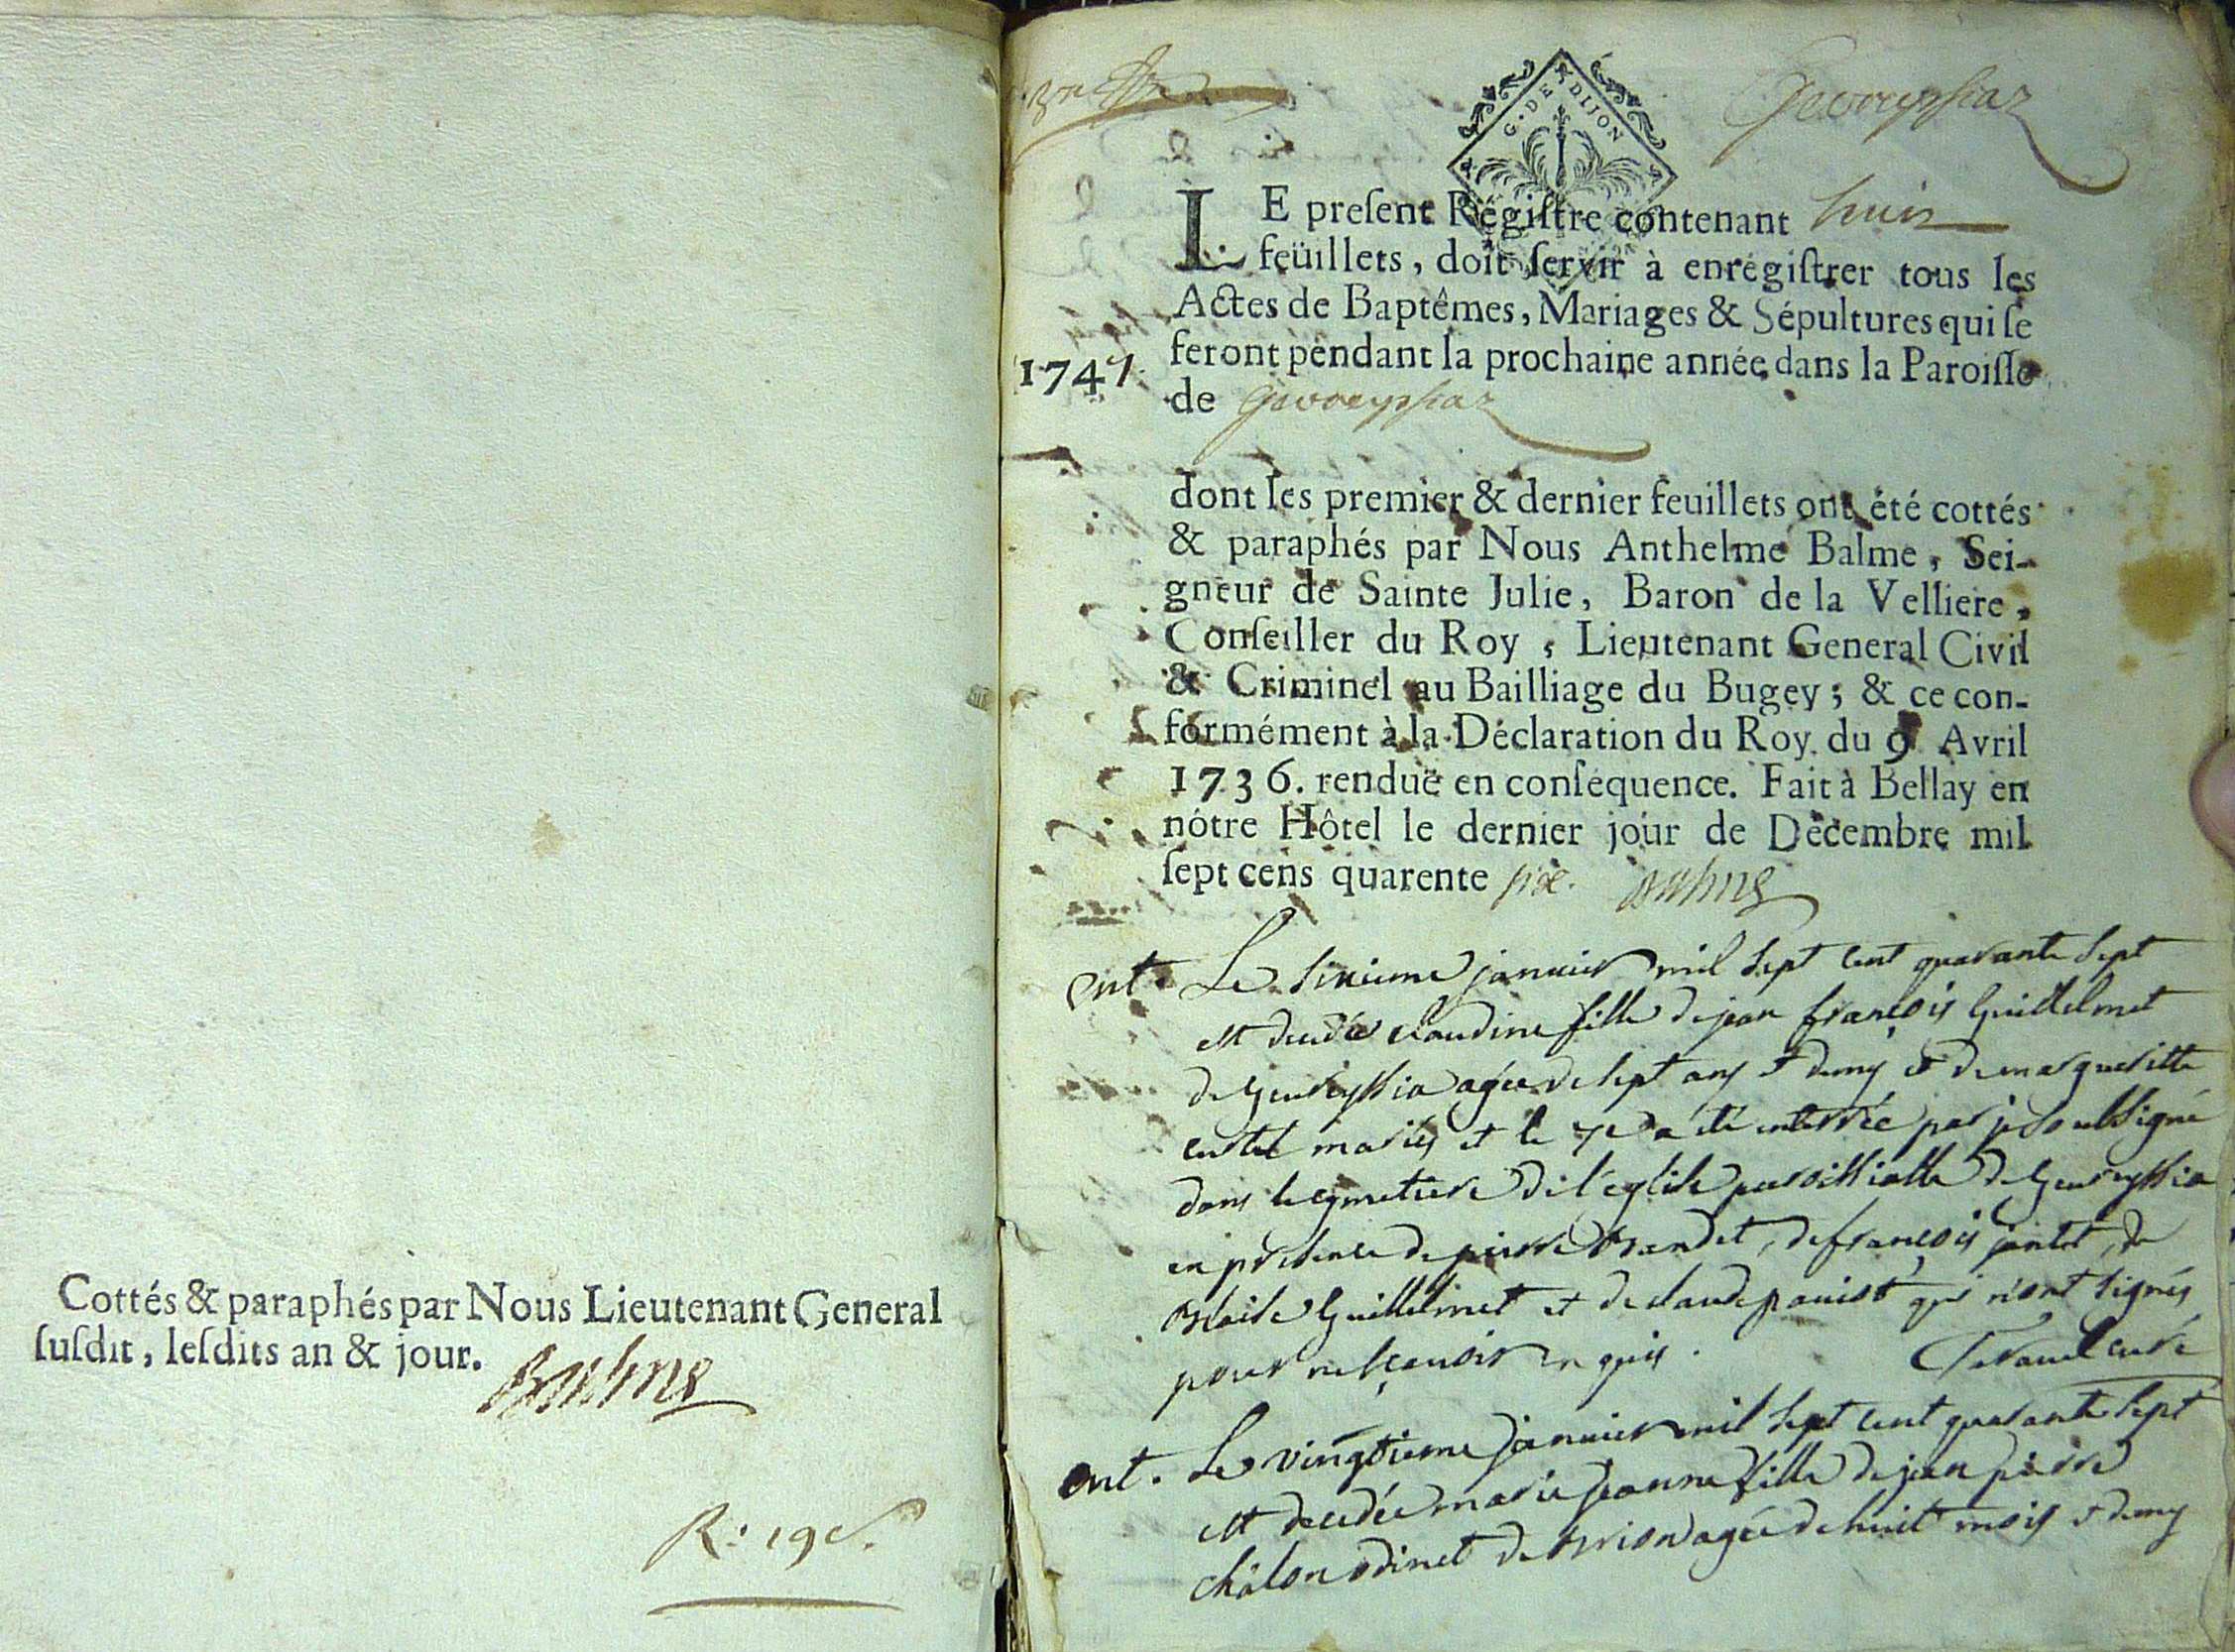 Cottés & paraphés par Nous Lieutenant General
ſuſdit, leſdits an & jour.
Balme
R: 19 ſ.
Gevreyssiaz
G. DE DIJON
LE preſent Régiſtre contenant huit
feüillets, doit ſervir à enrégiſtrer tous les
Actes de Baptêmes, Mariages & Sépultures qui ſe
feront pendant la prochaine année dans la Paroiſſe
1747.
de Gevreyssiaz
dont les premier & dernier feuillets ont été cottés
& paraphés par Nous Anthelme Balme, Sei-
gneur de Sainte Julie, Baron de la Velliere,
Conſeiller du Roy, Lieutenant General Civil
& Criminel au Bailliage du Bugey; & ce con-
formément à la Déclaration du Roy du 9 Avril
1736. renduë en conſéquence. Fait à Bellay en
nôtre Hôtel le dernier jour de Decembre mil
ſept cens quarente six. Balme
ent. Le sixieme janvier mil sept cent quarante sept
est decedée claudine fille de jean françois Guillelmet
de Gevreyssia agée de sept ans et demy et de margueritte
mariés et le 7e a été enterrée par je soubsigné
dans le cymetiere de l'eglise parroissialle de Gevreyssia
en presence de pierre Brandet, de françois jantet, de
Blaise Guillelmet et de claude qui n'ont signés
pour ne sçavoir enquis. curé
ent. Le vingtieme janvier mil sept cent quarante sept
est decedée marie jeanne fille de jean pierre
châlon odinet de Brion agée de huit mois et demy